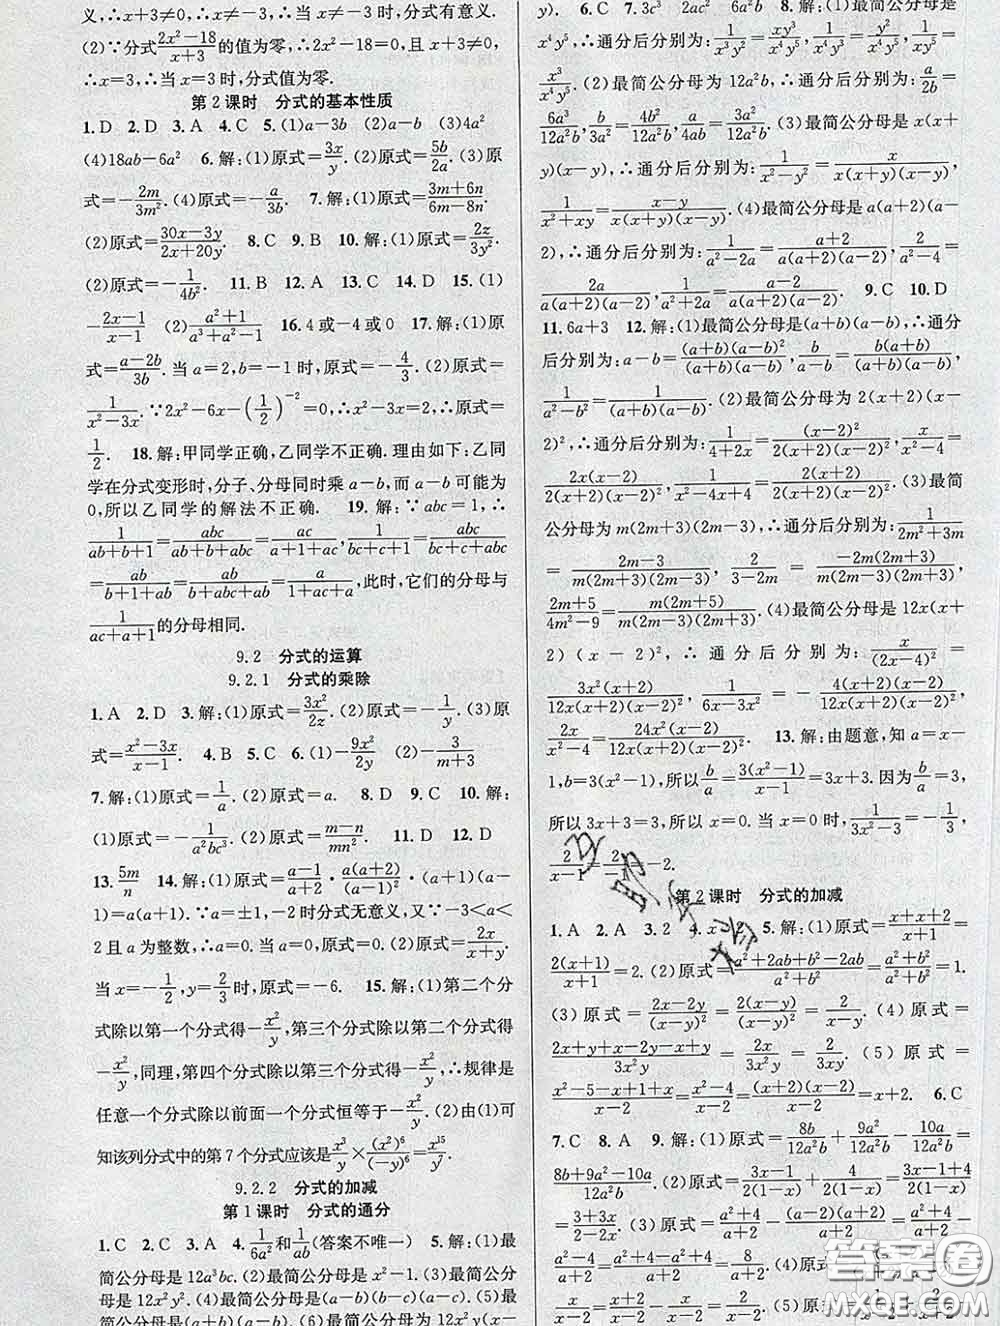 义,∴x+3≠0,∴x≠-3,∴当x≠-3时,分式有意义.
(2)∵分式(2x²-18)/(x+3)的值为零,∴2x²-18=0,且x+3≠0,
∴x=3,∴当x=3时,分式值为零.
第2课时 分式的基本性质
1.D 2.D 3.A 4.C 5.(1)a-3b (2)a-b (3)4a²
(4)18ab-6a² 6.解:(1)原式=3x/y.(2)原式=5b/2a.(3)原
式=-2m/3m².(4)原式=-a/3b. 7.解:(1)原式=(3m+6n)/(6m-8n).
(2)原式=(30x-3y)/(2x+20y). 8.C 9.B 10.解:(1)原式=2z/3y².
(2)原式=-1/4b². 11.B 12.A 13.C 14.D 15.(1)
-(2x-1)/(x-1) (2)(a²+1)/(a³+a²-1) 16.4或-4或0 17.解:(1)原
式=(a-2b)/3b.当a=2,b=-1时,原式=-4/3.(2)原式=
1/(x²-3x).∵2x²-6x-(1/2)⁻²=0,∴x²-3x=2,∴原式=
1/2. 18.解:甲同学正确,乙同学不正确.理由如下:乙同
学在分式变形时,分子、分母同时乘a-b,而a-b可能为
0,所以乙同学的解法不正确. 19.解:∵abc=1,∴
1/(ab+b+1)=abc/(ab+b+abc)=ac/(a+1+ac),1/(bc+c+1)=abc/(bc+c+abc)
=ab/(b+1+ab)=ab/(b+abc+ab)=a/(1+ac+a),此时,它们的分母与
1/(ac+a+1)的分母相同.
9.2 分式的运算
9.2.1 分式的乘除
1.A 2.D 3.解:(1)原式=3x²/2z.(2)原式=-1/y.(3)原
式=(x²-3x)/(x-1). 4.B 5.C 6.(1)-9x²/2y (2)-3/(m+3)
7.解:(1)原式=1/a.(2)原式=a. 8.D 9.C 10.解:
(1)原式=-1/a²bc³.(2)原式=(m-n)/mn². 11.D 12.D
13.5m/n 14.解:原式=(a-1)/(a+2)·a(a+2)/(a-1)·(a+1)(a-1)
=a(a+1).∵a=±1,-2时分式无意义,又∵-3<a<
2且a为整数,∴a=0.当a=0时,原式=0.(2)原式=2x/(x+y).
当x=-1/2,y=2/3时,原式=-6. 15.解:(1)第二个分
式除以第一个分式得-x²/y,第三个分式除以第二个分式
得-x²/y,同理,第四个分式除以第三个分式得-x²/y.∴规律是
任意一个分式除以前面一个分式恒等于-x²/y.(2)由(1)可
知该列分式中的第7个分式应该是x³/y×(x²)⁶/(-y)⁶=x¹⁵/y⁷.
9.2.2 分式的加减
第1课时 分式的通分
1.C 2.C 3.A 4.1/6a²和1/ab(答案不唯一) 5.解:(1)最
简公分母是12a³bc.(2)最简公分母是x²-1.(3)最简公分
母是12x²y².(4)最简公分母是(a+b)(a-b)(a-c).(5)最
y). 6.C 7.3c² 2ac² 6a²b 8.解:(1)最简公分母是
x⁴y⁵,∴通分后分别为:1/x³y²=xy³/x⁴y⁵,1/xy⁵=
x³/x⁴y⁵.(2)最简公分母是12a²b,∴通分后分别为:a/2b=
6a³/12a²b,b/3a²=4b²/12a²b,a/4ab=3a²/12a²b.(3)最简公分母是x(x+
y)(x-y),∴通分后分别为:1/(x²-y²)=x/x(x+y)(x-y),
1/(x²+xy)=(x-y)/x(x+y)(x-y).(4)最简公分母是a(a+2)(a-
2),∴通分后分别为:1/(a²-2a)=(a+2)/a(a+2)(a-2),2/(a²-4)=
2a/a(a+2)(a-2),1/(a²+2a)=(a-2)/a(a+2)(a-2). 9.C 10.D
11.6a+3 12.解:(1)最简公分母是(a+b)(a-b),∴通分
后分别为:a-b=(a+b)(a-b)²/(a+b)(a-b),b/(a-b)=b(a+b)/(a+b)(a-b),
1/(a²-b²)=1/(a+b)(a-b).(2)最简公分母为2(x+2)(x-
2)²,∴通分后分别为:1/(4+2x)=(x-2)²/2(x+2)(x-2)²,x/(x²-4x+4)=
2x(x+2)/2(x+2)(x-2)²,x/(x²-4)=2x(x-2)/2(x+2)(x-2)².(3)最简
公分母为m(2m+3)(2m-3),∴通分后分别为:1/(2m²+3m)
=(2m-3)/m(2m+3)(2m-3),2/(3-2m)=-2m(2m+3)/m(2m+3)(2m-3),
(2m+5)/(4m²-9)=m(2m+5)/m(2m+3)(2m-3).(4)最简公分母是12x(x+
2)(x-2)²,∴通分后分别为:x/(2x-4)²=
3x²(x+2)/12x(x+2)(x-2)²,1/(6x-3x²)=-4(x+2)(x-2)/12x(x+2)(x-2)²,
2x/(x²-4)=24x²(x-2)/12x(x+2)(x-2)². 13.解:由题意,知a=x-
1,b=3(x²-1),所以b/a=3(x²-1)/(x-1)=3x+3.因为b/a=3,
所以3x+3=3,所以x=0.当x=0时,1/(3x²-3)=-1/3,
2/(x-1)=2/-1=-2.
第2课时 分式的加减
1.A 2.A 3.2 5.解:(1)原式=(x+x+2)/(x+1)=
2(x+1)/(x+1)=2.(2)原式=(a²+2ab+b²-2ab)/(a²+b²)=(a²+b²)/(a²+b²)=1.
(3)原式=(2x-2y)/(x-y)²=2(x-y)/(x-y)²=2/(x-y).(4)原式=
(2x+y+x-2y+y-x)/3x²y=2x/3x²y=2/3xy.(5)原式=
(x²-5-x+1+x)/(x-2)=(x²-4)/(x-2)=(x+2)(x-2)/(x-2)=x+2. 6.C
7.C 8.A 9.解:(1)原式=8b/12a²b+9a²/12a²b-10a/12a²b=
(8b+9a²-10a)/12a²b.(2)原式=(3x-1)/2(1-x)+4/2(1-x)=(3x-1+4)/2(1-x)=
(3+3x)/(2-2x).(3)原式=(a²+4)/(a²-4)-(a-2)(a+2)/(a²-4)=
答案圈
MXQE.COM